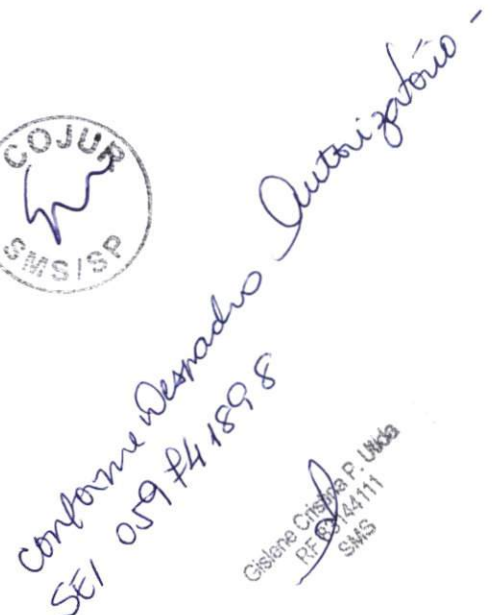 COJUR
SMS/SP
conforme Despacho Autorizatório -
SEI 059741898
Gislene Cristina P.
RF
SMS